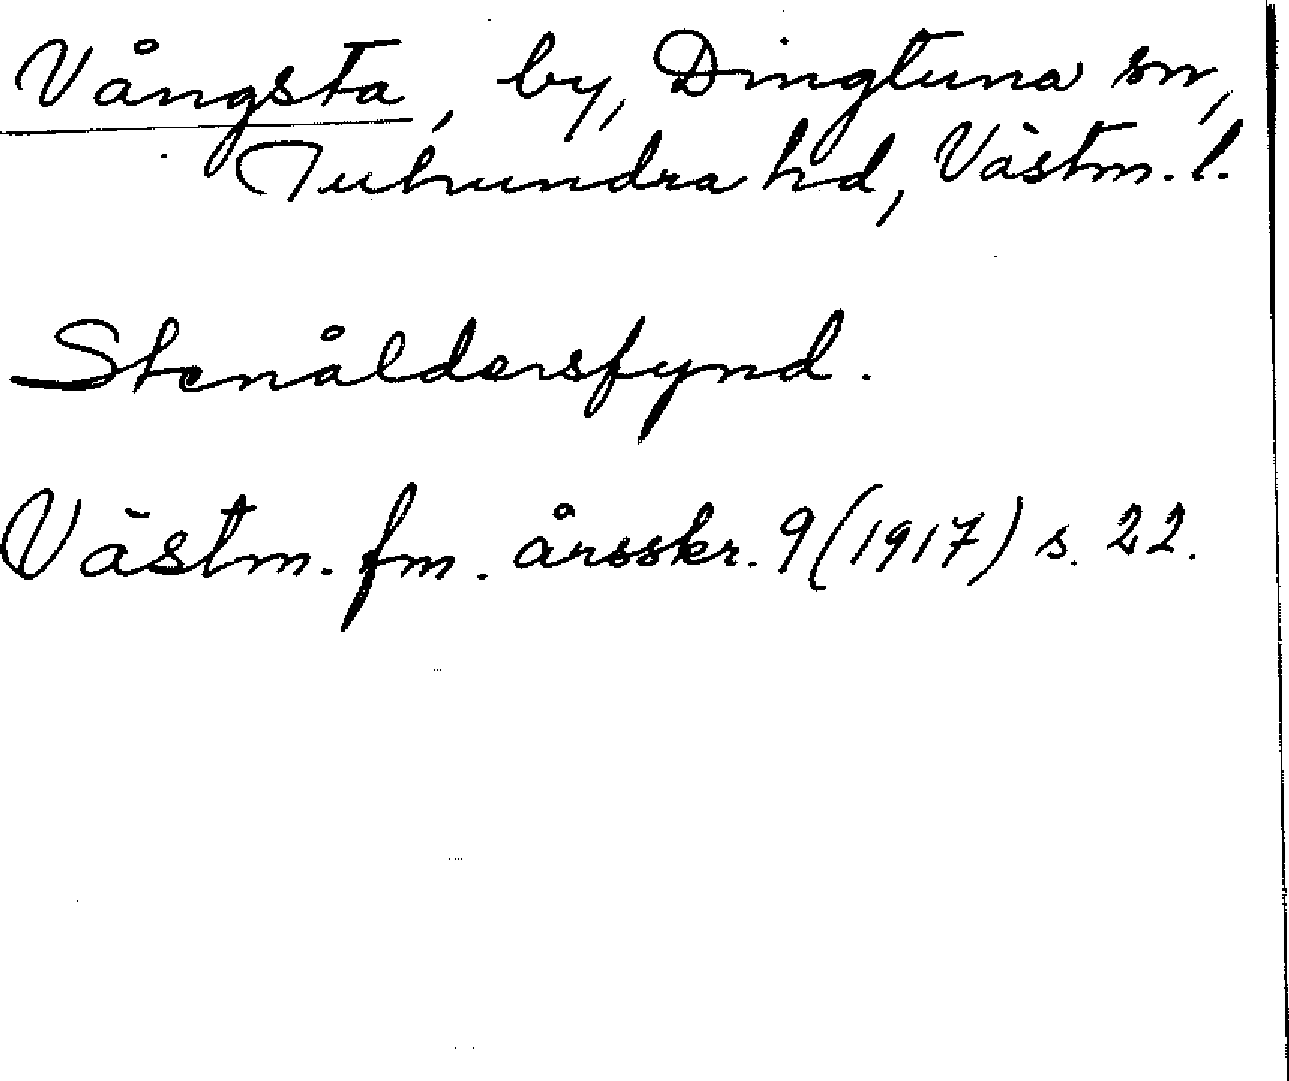 Vångsta, by, Dingtuna sn,
Tuhundra hd, Västm. l.
Stenåldersfynd.
Västm. fm. årsskr. 9 (1917) s. 22.